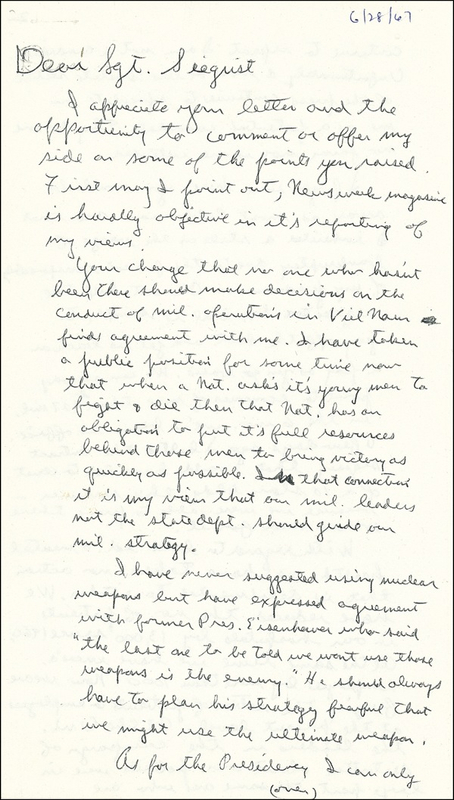 6/28/67
Dear Sgt. Siegrist
I appreciate your letter and the
opportunity to comment or offer my
side on some of the points you raised.
First may I point out, Newsweek magazine
is hardly objective in it's reporting of
my views.
Your charge that no one who hasn't
been there should make decisions on the
conduct of mil. operations in Viet Nam
finds agreement with me. I have taken
a public position for some time now
that when a Nat. asks it's young men to
fight & die then that Nat. has an
obligation to put it's full resources
behind those men to bring victory as
quickly as possible. In that connection
it is my view that our mil. leaders
not the state dept. should guide our
mil. strategy.
I have never suggested using nuclear
weapons but have expressed agreement
with former Pres. Eisenhower who said
"the last one to be told we wont use those
weapons is the enemy." He should always
have to plan his strategy fearful that
we might use the ultimate weapon.
As for the Presidency I can only
(over)